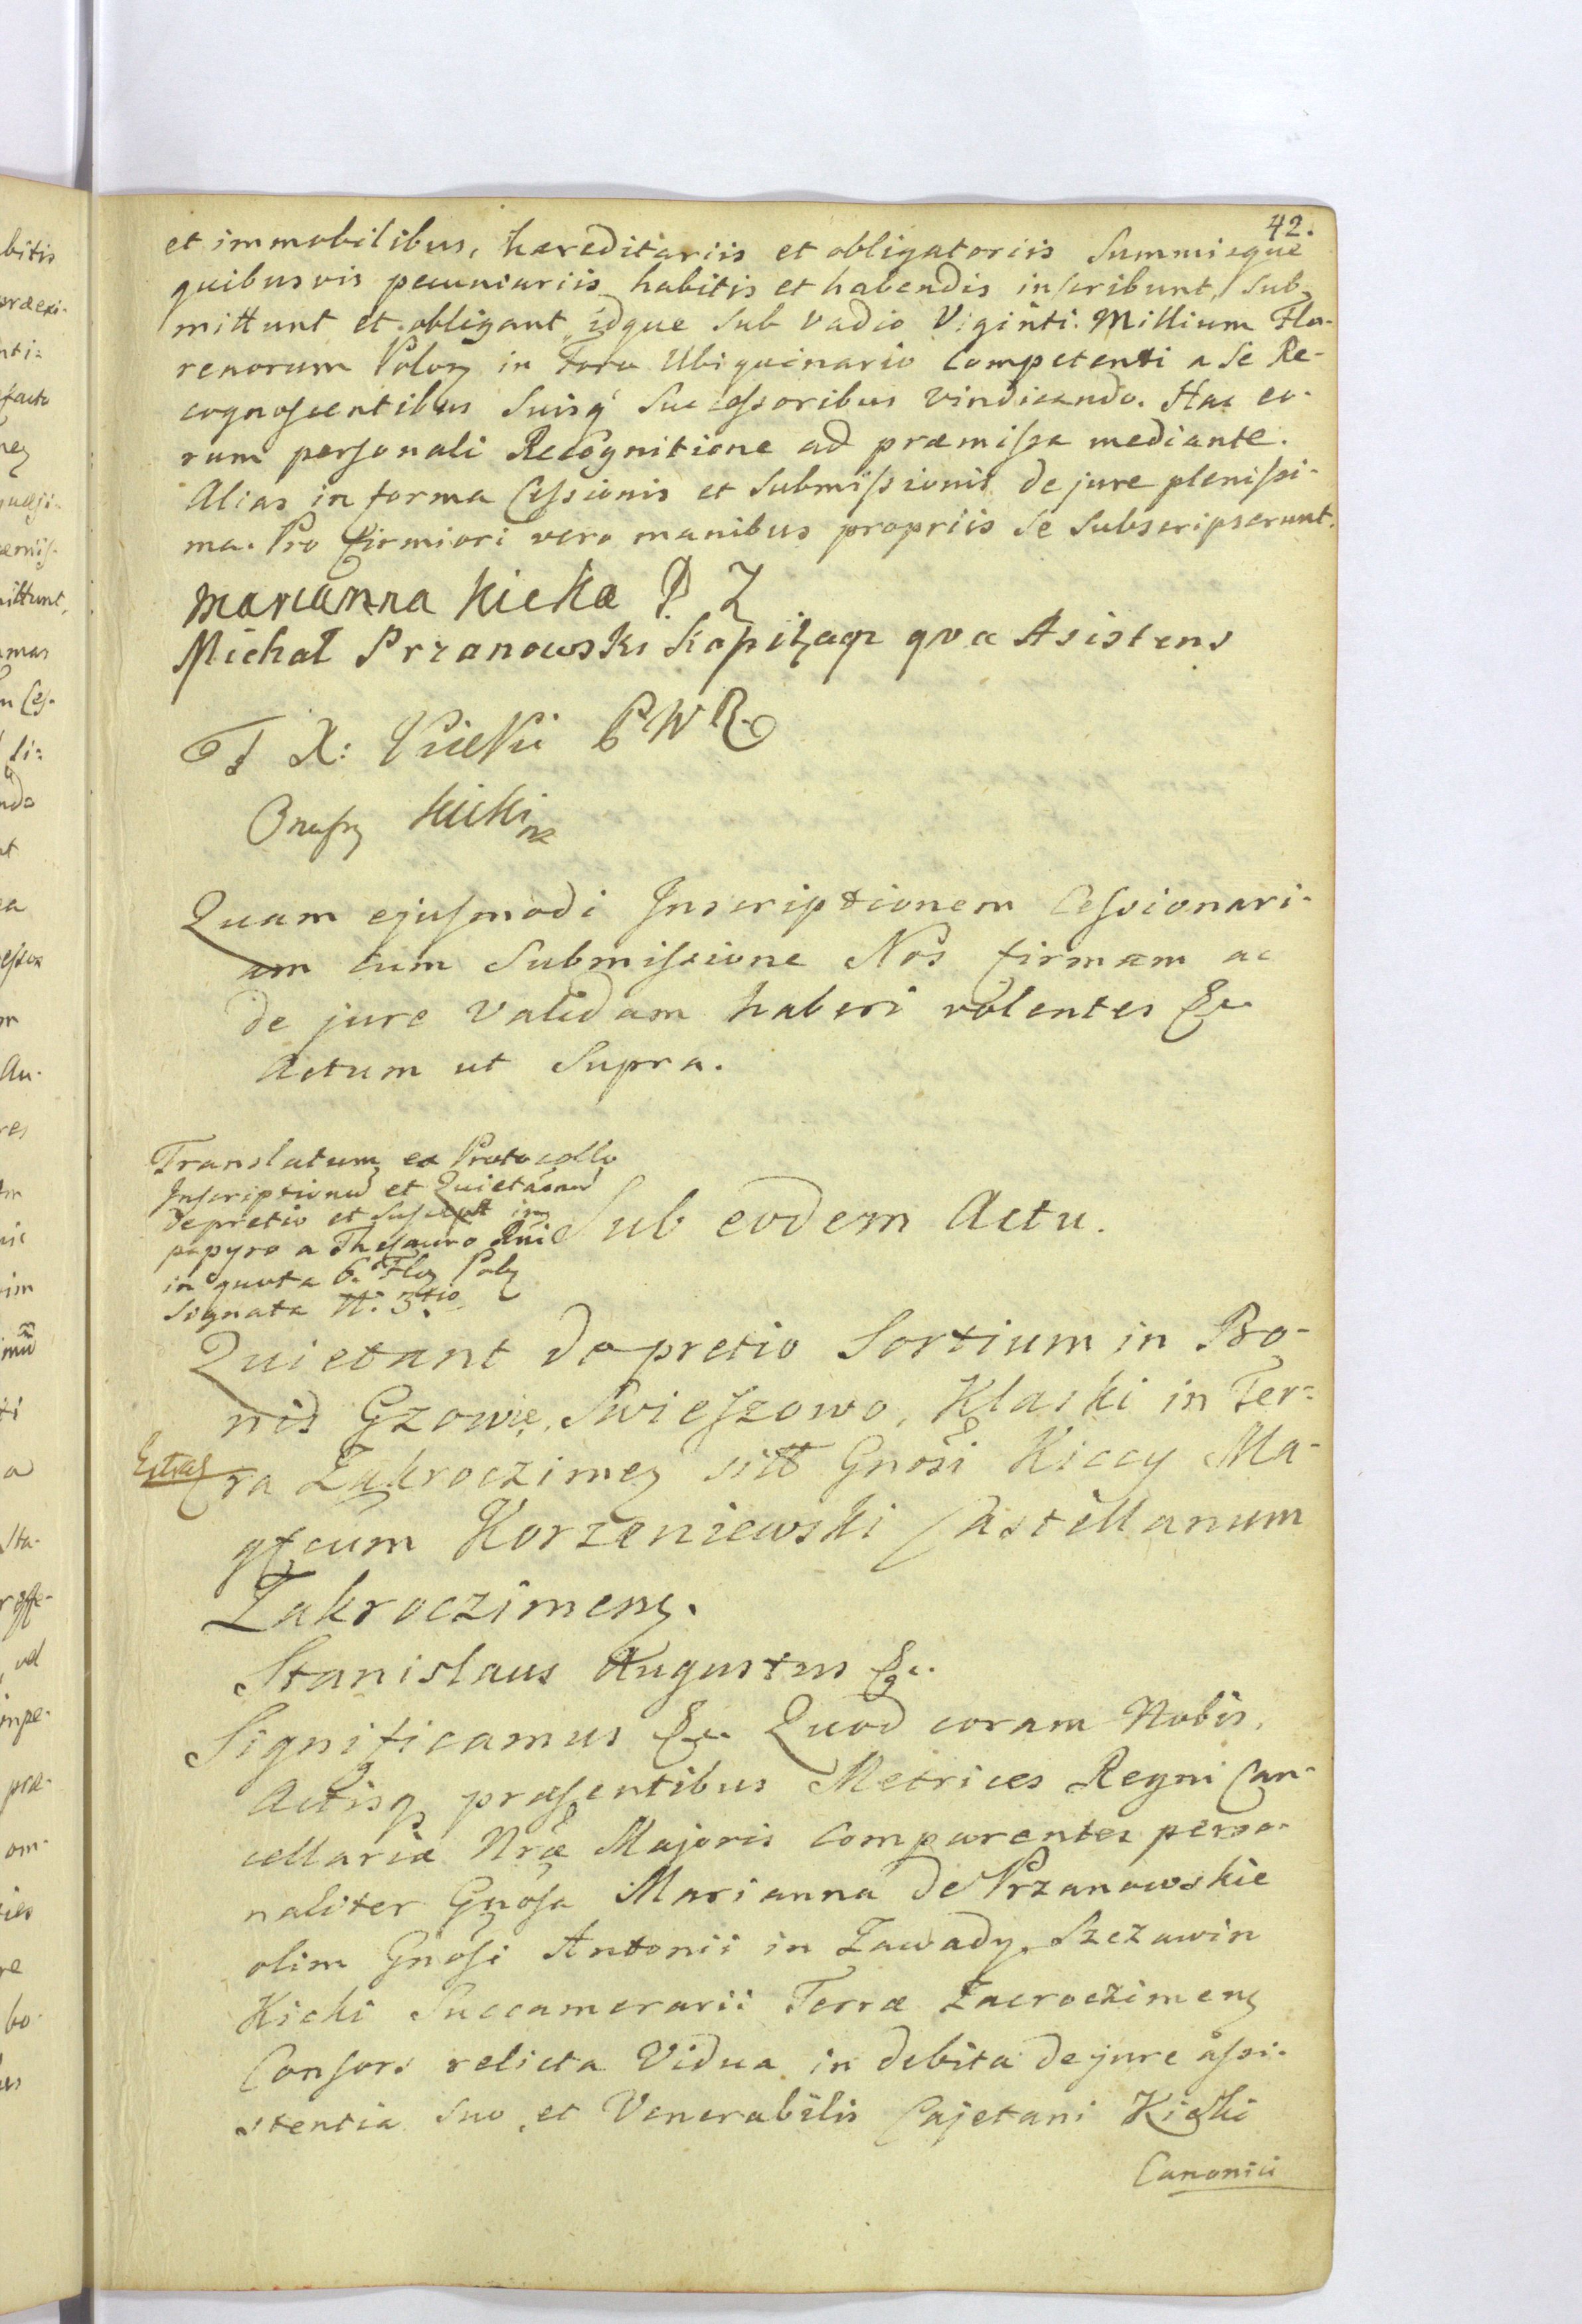 42.
et immobilibus, hæreditariis et obligatoriis Summisque
quibusvis pecuniariis habitis et habendis inscribunt, sub-
mittunt et obligant, idque sub vadio Viginti Millium Flo-
renorum Polon in Foro Ubiquinario Competenti a Se Re-
cognoscentibus Suisq Successoribus vindicando. Hac eo-
rum personali Recognitione ad præmissa mediante.
Alias in forma Cessionis et Submissionis de jure plenissi-
ma. Pro firmiori vero manibus propriis Se Subscripserunt.
Marianna Kicka P. Z
Michał Przanowski Kapitan qva Asistens
X: Kicki
Onufry Kicki
Quam ejusmodi Inscriptionem Cessionari-
am cum Submissione Nos firmam ac
de jure Validam haberi volentes &c.
Actum ut Supra.
Translatum ex Protocollo
Inscriptionu et Quietaonu
de pretio et Suscept in
papyro a Thesauro Rni
in quota 6. Flor Pol
Signata N. 3tio
Sub eodem Actu.
Quietant de pretio Sortium in Bo-
nis Gzowie, Swieszowo, Klaski in Ter-
Extrad
ra Zakroczimen sitt Gnosi Kiccy Ma-
gfcum Korzeniewski Castellanum
Zakroczimens.
Stanislaus Augustus &c.
Significamus &c. Quod coram Nobis,
Actisq præsentibus Metrices Regni Can-
cellariæ Nræ Majoris Comparentes perso-
naliter Gnosa Marianna de Przanowskie
olim Gnosi Antonii in Zawady, Szczawin
Kicki Succamerarii Terræ Zacroczimens
Consors relicta Vidua in debita de jure assi-
stentia Suo, et Venerabilis Cajetani Kicki
Canonici